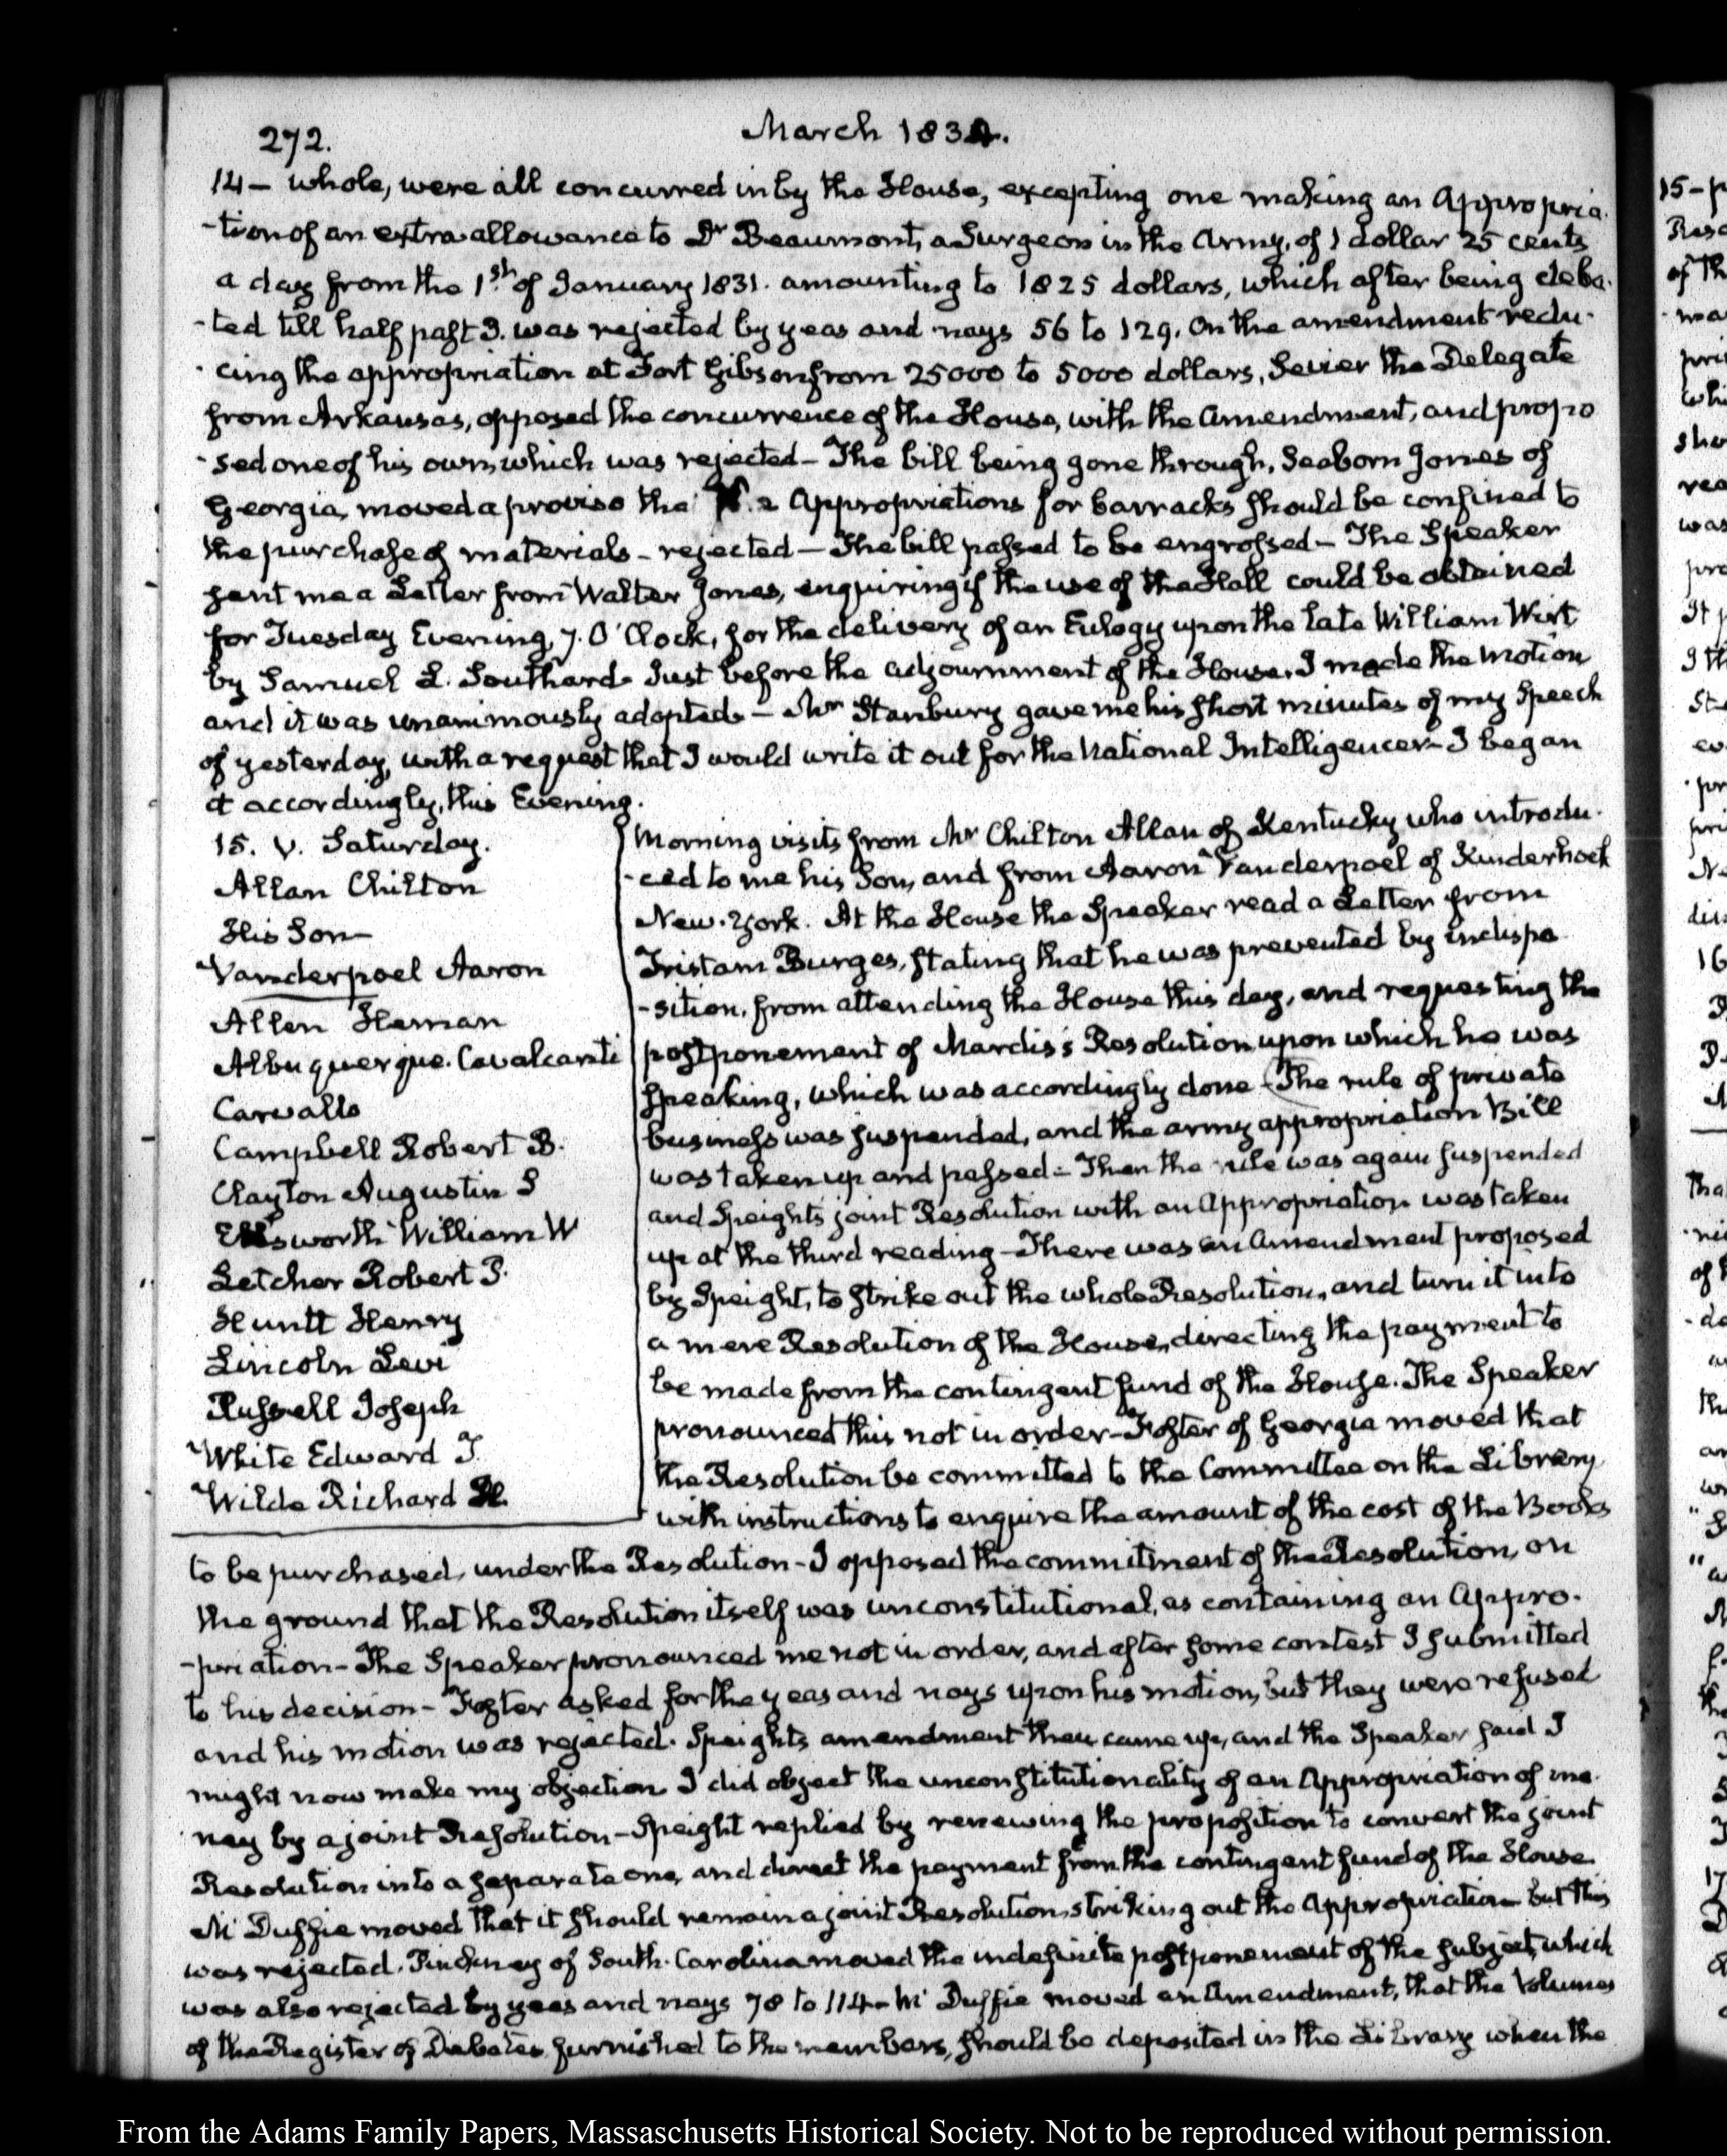 272.
March 1834.
14 – whole, were all concurred in by the House, excepting one making an Appropria-
-tion of an extra allowance to Dr Beaumont, a Surgeon in the Army, of 1 dollar 25 cents
a day from the 1st of January 1831. amounting to 1825 dollars, which after being deba-
-ted till half past 3. was rejected by yeas and nays 56 to 129. On the amendment redu-
-cing the appropriation at Fort Gibson from 25000 to 5000 dollars, Sevier the Delegate
from Arkansas, opposed the concurrence of the House, with the Amendment, and propo
-sed one of his own, which was rejected – The bill being gone through, Seaborn Jones of
Georgia, moved a proviso tha Appropriations for barracks should be confined to
the purchase of materials – rejected – The bill passed to be engrossed – The Speaker
sent me a Letter from Walter Jones, enquiring if the use of the Hall could be obtained
for Tuesday Evening, 7. O'Clock, for the delivery of an Eulogy upon the late William Wirt
by Samuel L. Southard. Just before the adjournment of the House, I made the motion
and it was unanimously adopted – Mr Stanbury gave me his short minutes of my Speech
of yesterday, with a request that I would write it out for the National Intelligencer – I began
it accordingly, this Evening.
15. V. Saturday.
Allan Chilton
His Son –
Vanderpoel Aaron
Allen Heman
Albuquerque. Cavalcanti
Carvallo
Campbell Robert B.
Clayton Augustin S
Ellsworth William W
Letcher Robert P.
Huntt Henry
Lincoln Levi
Russell Joseph
White Edward J.
Wilde Richard H.
Morning visits from Mr Chilton Allan of Kentucky who introdu-
-ced to me his Son, and from Aaron Vanderpoel of Kinderhook
New-York. At the House the Speaker read a Letter from
Tristam Burges, stating that he was prevented by indispo
-sition, from attending the House this day, and requesting the
postponement of Mardis's Resolution upon which he was
speaking, which was accordingly done – The rule of private
business was suspended, and the army appropriation Bill
was taken up and passed – Then the rule was again suspended
and Speight's joint Resolution with an Appropriation was taken
up at the third reading – There was an Amendment proposed
by Speight, to strike out the whole Resolution, and turn it into
a mere Resolution of the House, directing the payment to
be made from the contingent fund of the House. The Speaker
pronounced this not in order – Foster of Georgia moved that
the Resolution be committed to the Committee on the Library
with instructions to enquire the amount of the cost of the Books
to be purchased, under the Resolution – I opposed the commitment of the Resolution, on
the ground that the Resolution itself was unconstitutional, as containing an Appro-
-priation – The Speaker pronounced me not in order, and after some contest I submitted
to his decision – Foster asked for the yeas and nays upon his motion, but they were refused
and his motion was rejected. Speight's amendment then came up, and the Speaker said I
might now make my objection. I did object the unconstitutionality of an Appropriation of mo-
-ney by a joint Resolution – Speight replied by renewing the proposition to convert the joint
Resolution into a separate one, and direct the payment from the contingent fund of the House
Mc Duffie moved that it should remain a joint Resolution, striking out the Appropriation but this
was rejected. Pinckney of South-Carolina moved the indefinite postponement of the subject, which
was also rejected by yeas and nays 78 to 114 – Mc Duffie moved an Amendment, that the Volumes
of the Register of Debates furnished to the members, should be deposited in the Library when the
From the Adams Family Papers, Massachusetts Historical Society. Not to be reproduced without permission.